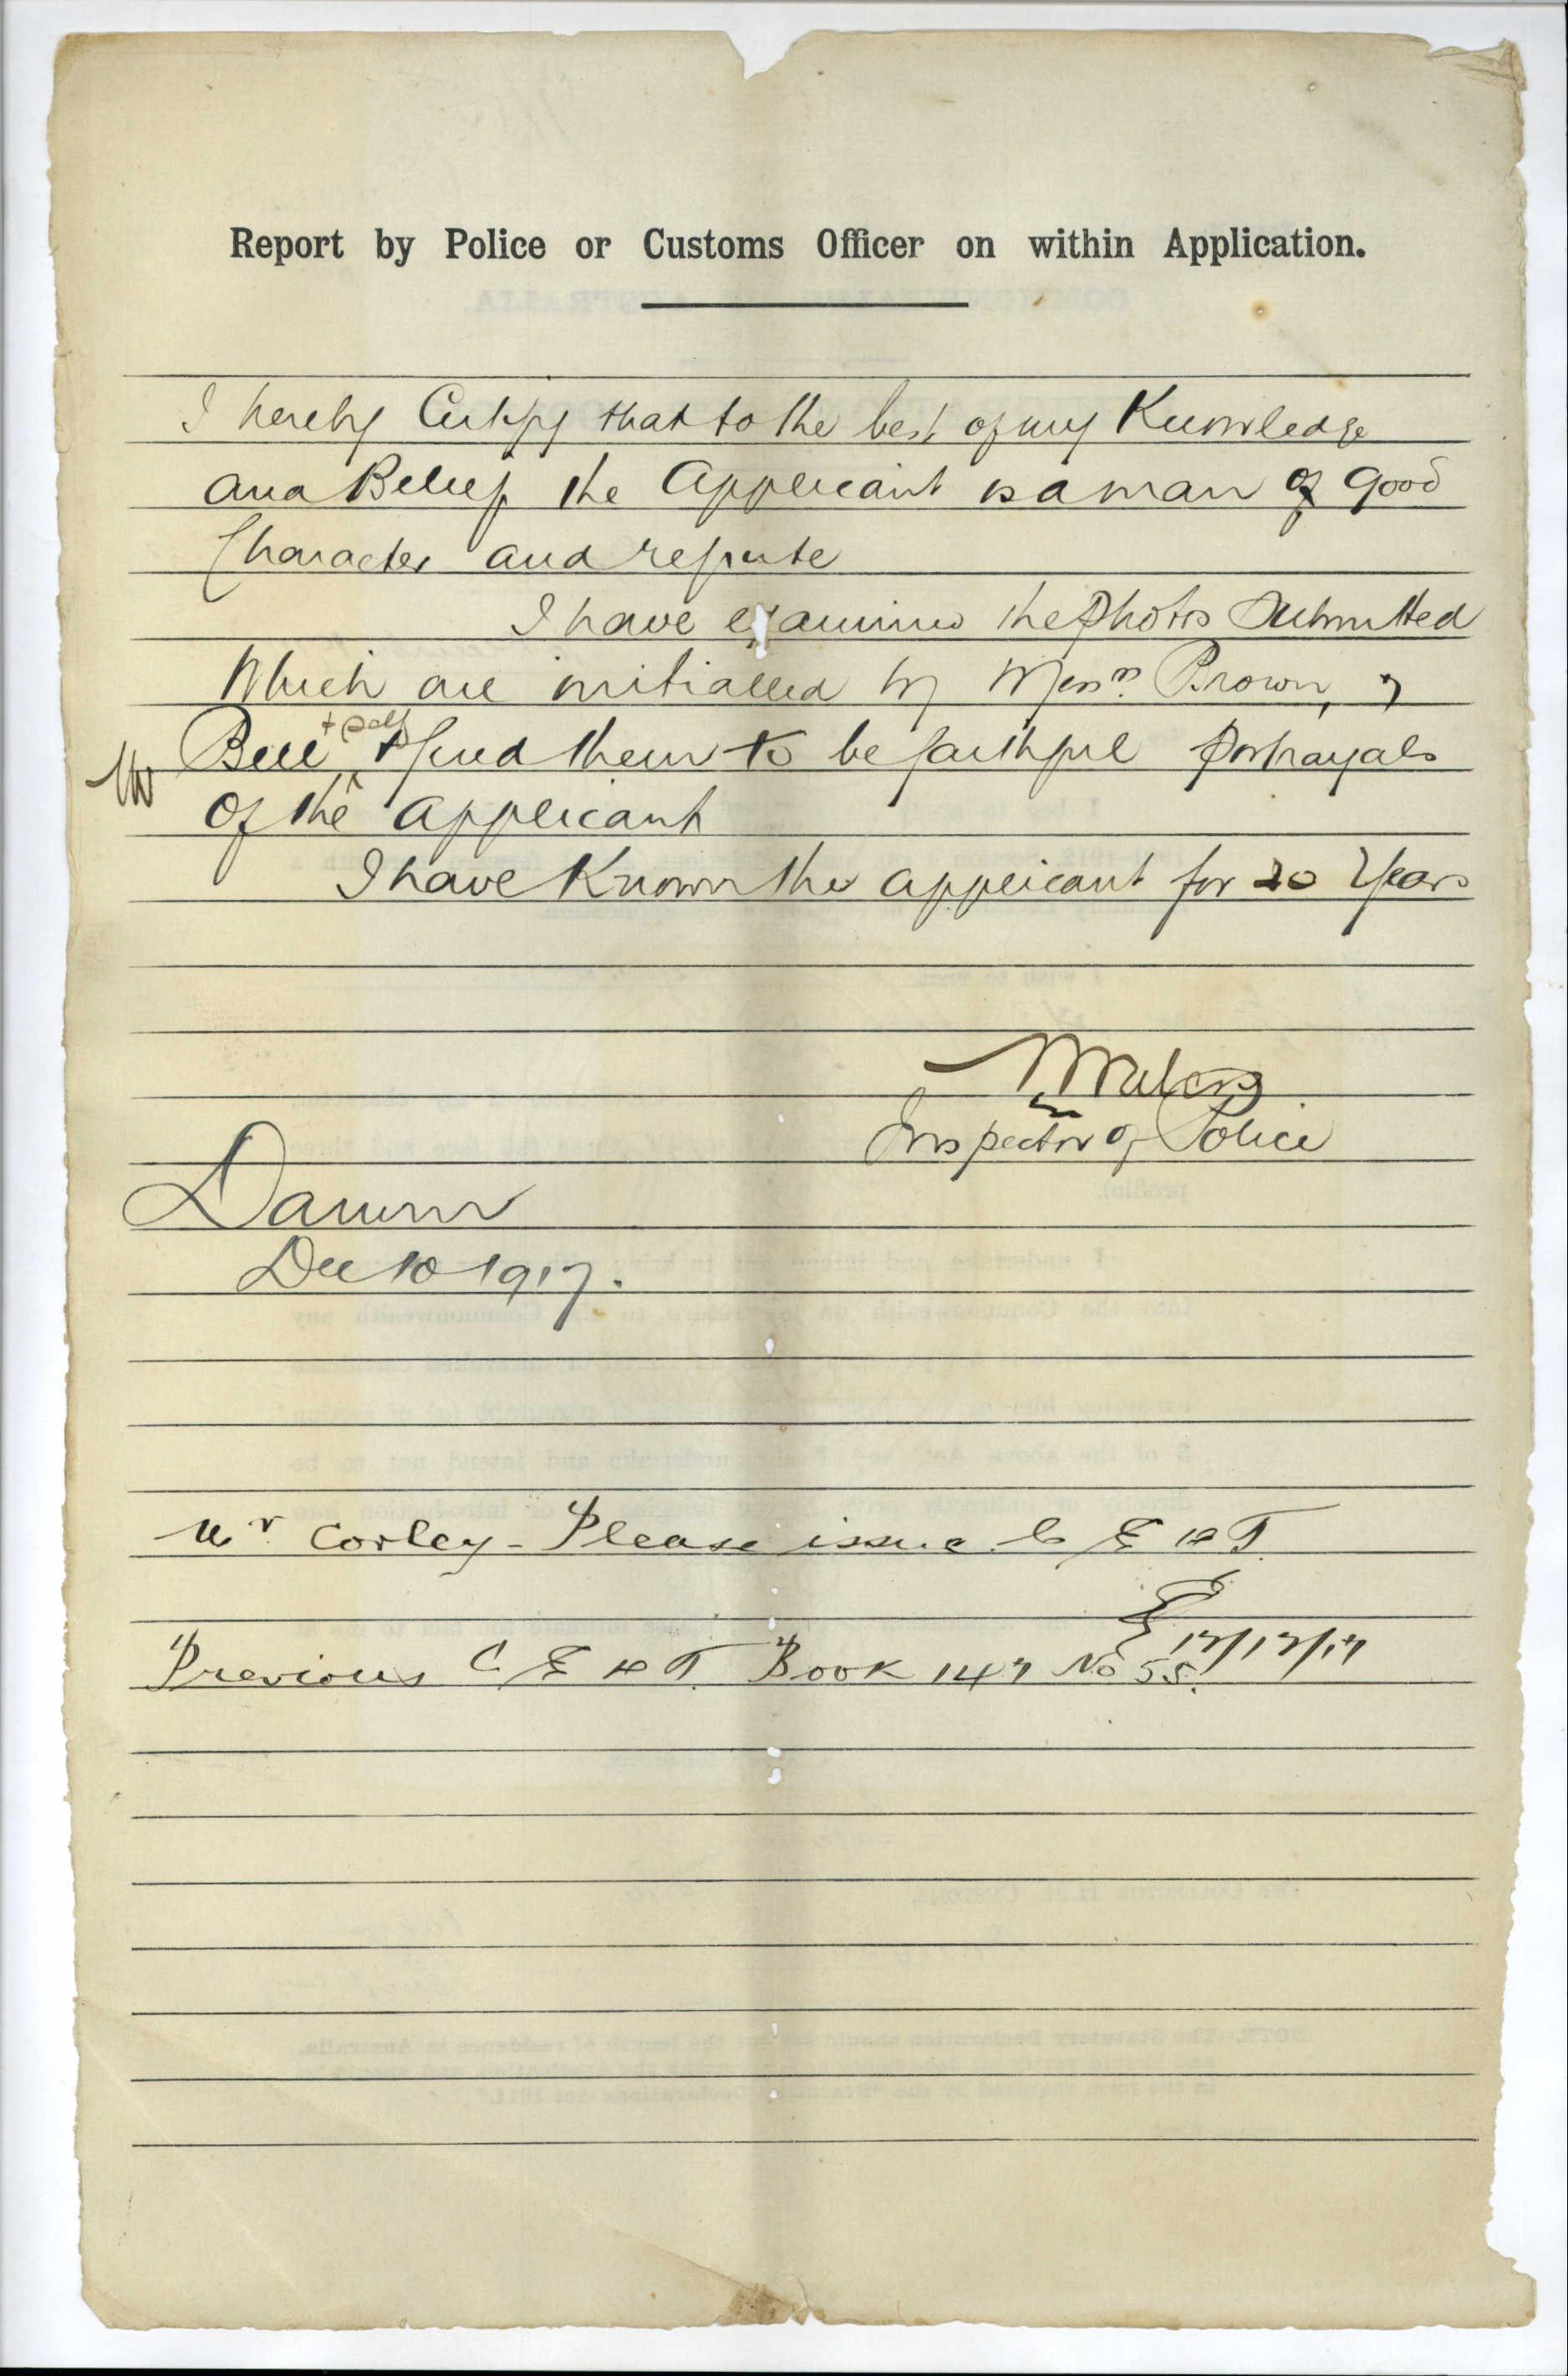 Report by Police or Customs Officer on within Application.
I hereby Certify that to the best of my Knowledge
and Belief the Applicant is a man of good
Character and repute
I have examined the Photos Submitted
Which are initialled by Messrs. Brown, &
+ self
Bell & find them to be faithful portrayals
of the applicant
I have Known the applicant for 20 Years
Inspector of Police
Darwin
Dec 10 1917.
Mr. Corley - Please issue C E D T.
12/12/17
Previous C E D T. Book 147 No 55.